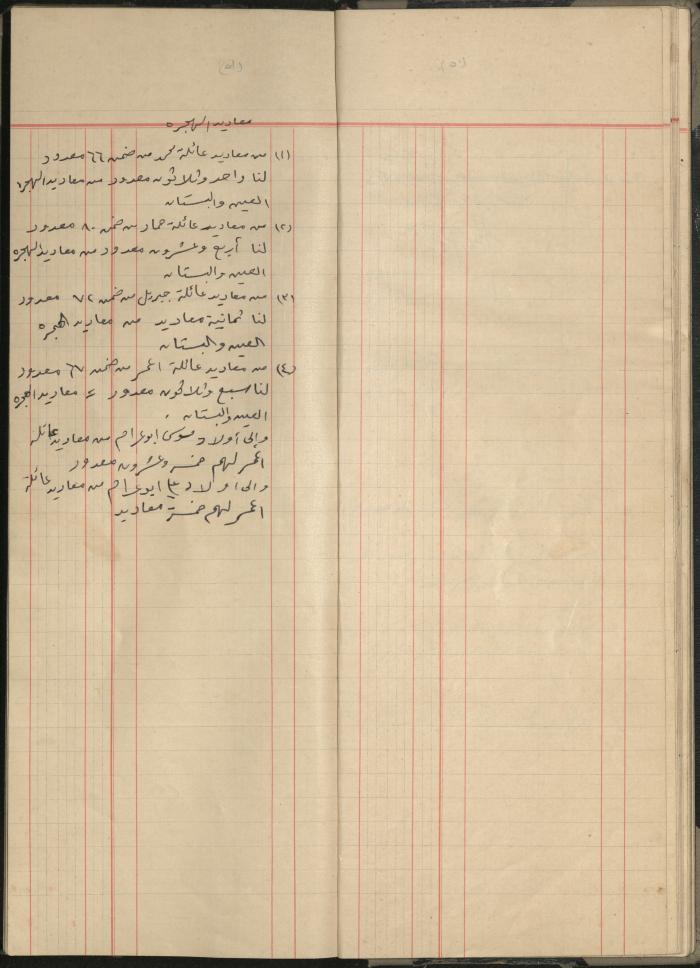 (٥٠)
(٥١)
معاديد الهجره
(١) من معاديد عائلة محمد من ضمن ٦٦ معدود
لنا واحد وثلاثون معدود من معاديد الهجره
العين والبستان
(٢) من معاديد عائلة حماد من ضمن ٨٠ معدود
لنا أربع وعشرون معدود من معاديد الهجره
العين والبستان
(٣) من معاديد عائلة جبريل من ضمن ٧٢ معدود
لنا ثمانية معاديد من معاديد الهجره
العين والبستان
(٤) من معاديد عائلة اعمر من ضمن ٦٧ معدود
لنا سبع وثلاثون معدود معاديد الهجره
العين والبستان .
وإلى أولاد موسى ابو عرام من معاديد عائلة
اعمر لهم خمسه وعشرون معدود
والى اولاد ابو عرام من معاديد عائلة
اعمر لهم خمسة معاديد